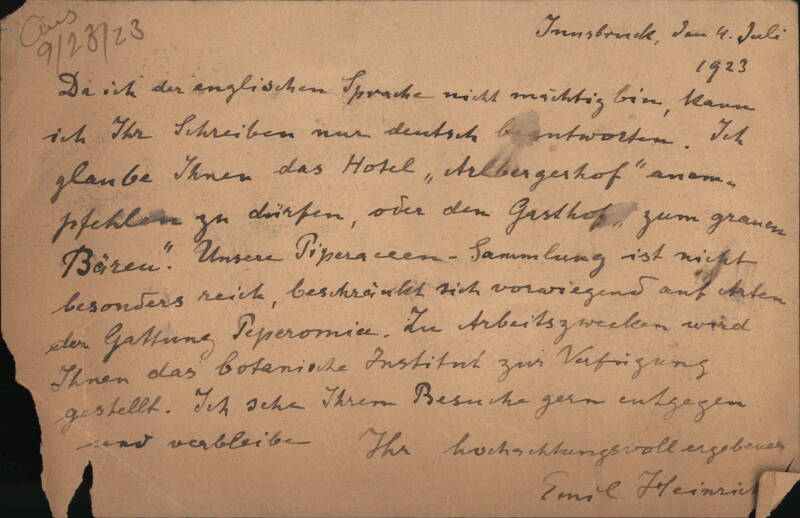 Ans
9/23/23
Innsbruck, den 4. Juli
1923
Da ich der englischen Sprache nicht mächtig bin, kann
ich Ihr Schreiben nur deutsch beantworten. Ich
glaube Ihnen das Hotel „Arlbergerhof" anem-
pfehlen zu dürfen, oder den Gasthof „zum grauen
Bären". Unsere Piperaceen-Sammlung ist nicht
besonders reich, beschränkt sich vorwiegend auf Arten
der Gattung Peperomia. Zu Arbeitszwecken wird
Ihnen das botanische Institut zur Verfügung
gestellt. Ich sehe Ihrem Besuche gern entgegen
und verbleibe Ihr hochachtungsvoll ergebener
Emil Heinrich